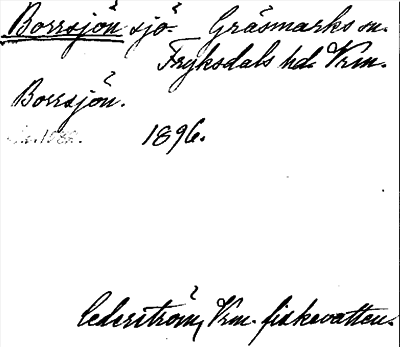 Borrsjön sjö. Gräsmarks sn.
Fryksdals hd. Vrm.
Borrsjön.
1896.
Cederström, Vrm. fiskevatten.